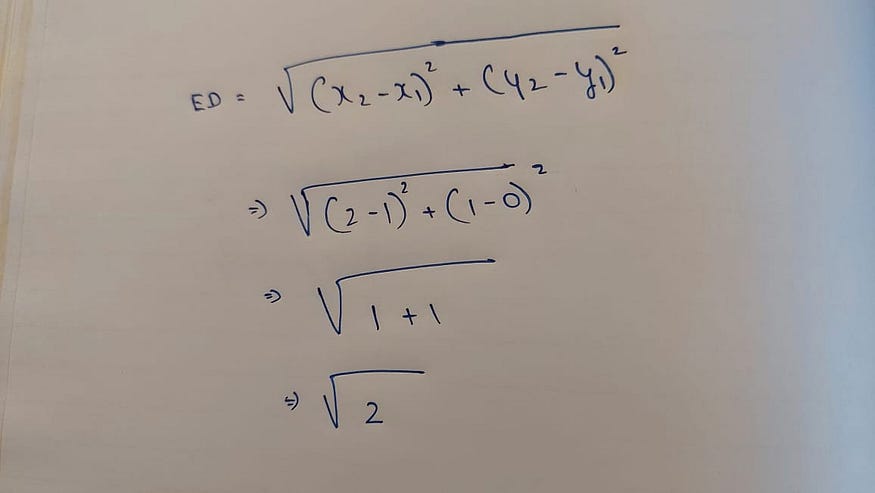 ED = √(x₂-x₁)² + (y₂-y₁)²
⇒ √(2-1)² + (1-0)²
⇒ √1+1
⇒ √2